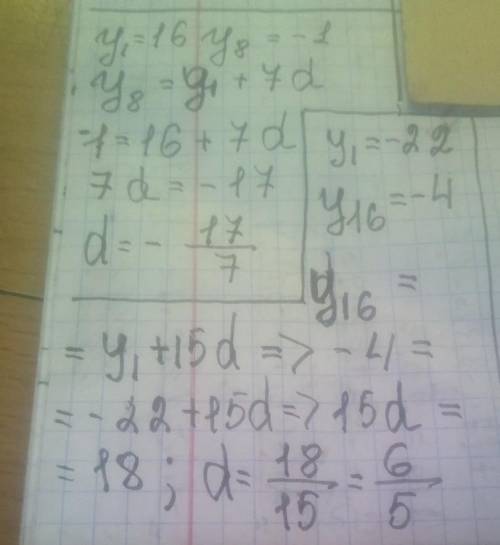 y₁=16 y₈ = -1
y₈ = y₁ + 7d
-1=16 + 7d
7d = -17
d = - 17/7
y₁ = -22
y₁₆ = -4
y₁₆ =
= y₁ +15d => -4 =
= -22 +15d => 15d =
= 18; d = 18/15 = 6/5